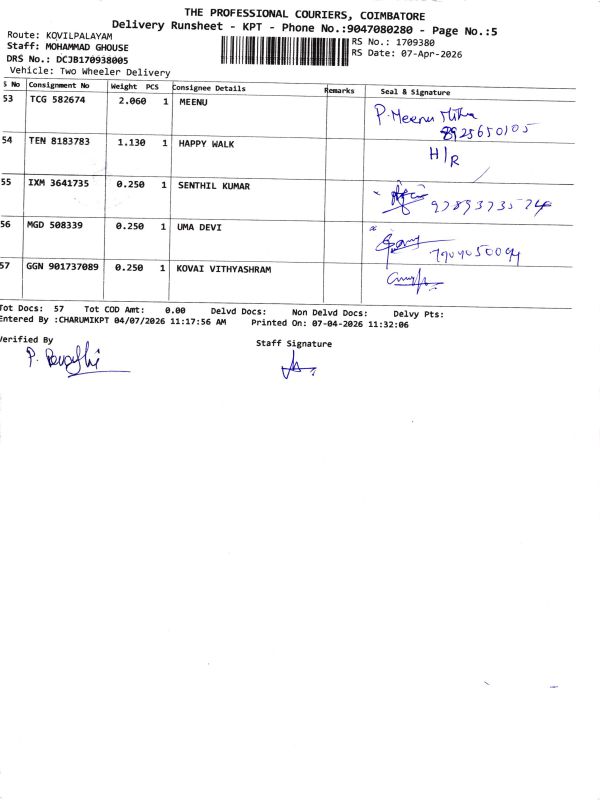 THE PROFESSIONAL COURIERS, COIMBATORE
Delivery Runsheet - KPT - Phone No.:9047080280 - Page No.:5
Route: KOVILPALAYAM
RS No.: 1709380
Staff: MOHAMMAD GHOUSE
RS Date: 07-Apr-2026
DRS No.: DCJB170938005
Vehicle: Two Wheeler Delivery
S No Consignment No Weight PCS Consignee Details Remarks Seal & Signature
53 TCG 582674 2.060 1 MEENU P. Meenu Mithra
8925650105
54 TEN 8183783 1.130 1 HAPPY WALK H/R
55 IXM 3641735 0.250 1 SENTHIL KUMAR 9789373574
56 MGD 508339 0.250 1 UMA DEVI
57 GGN 901737089 0.250 1 KOVAI VITHYASHRAM
Tot Docs: 57 Tot COD Amt: 0.00 Delvd Docs: Non Delvd Docs: Delvy Pts:
Entered By :CHARUMIKPT 04/07/2026 11:17:56 AM Printed On: 07-04-2026 11:32:06
Verified By
Staff Signature